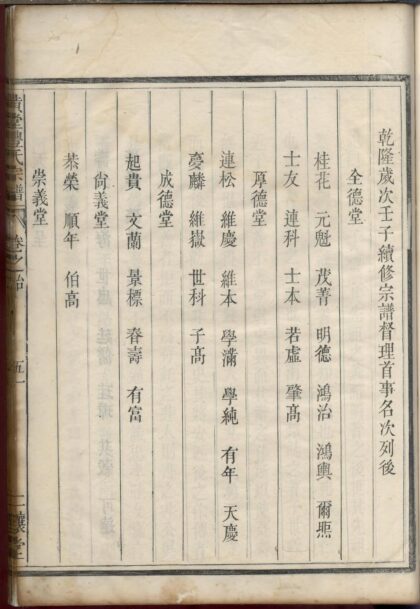 乾隆歲次壬子續修宗譜督理首事名次列後
全德堂
桂花 元魁 茂菁 明德 鴻治 鴻興 爾熙
士友 連科 士本 若虛 肇高
厚德堂
連松 維慶 維本 學滿 學純 有年 天慶
夢麟 維嶽 世科 子高
成德堂
起貴 文蘭 景標 春壽 有富
尙義堂
恭榮 順年 伯高
崇義堂
堂 氏宗譜 卷之 五一
堂